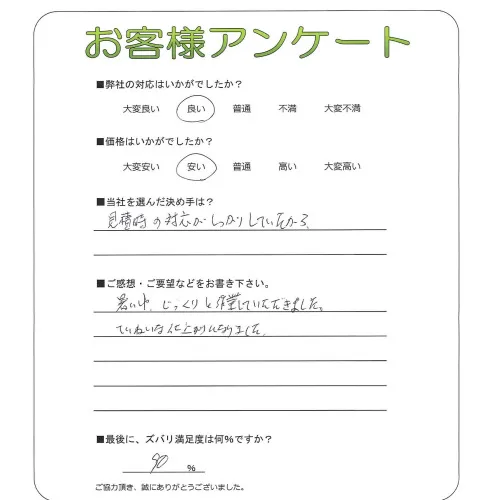 お客様アンケート
■弊社の対応はいかがでしたか？
大変良い 良い 普通 不満 大変不満
■価格はいかがでしたか？
大変安い 安い 普通 高い 大変高い
■当社を選んだ決め手は？
見積時の対応がしっかりしていたから。
■ご感想・ご要望などをお書き下さい。
暑い中、じっくりと作業していただきました。
ていねいな仕上がりになりました。
■最後に、ズバリ満足度は何%ですか？
90 %
ご協力頂き、誠にありがとうございました。